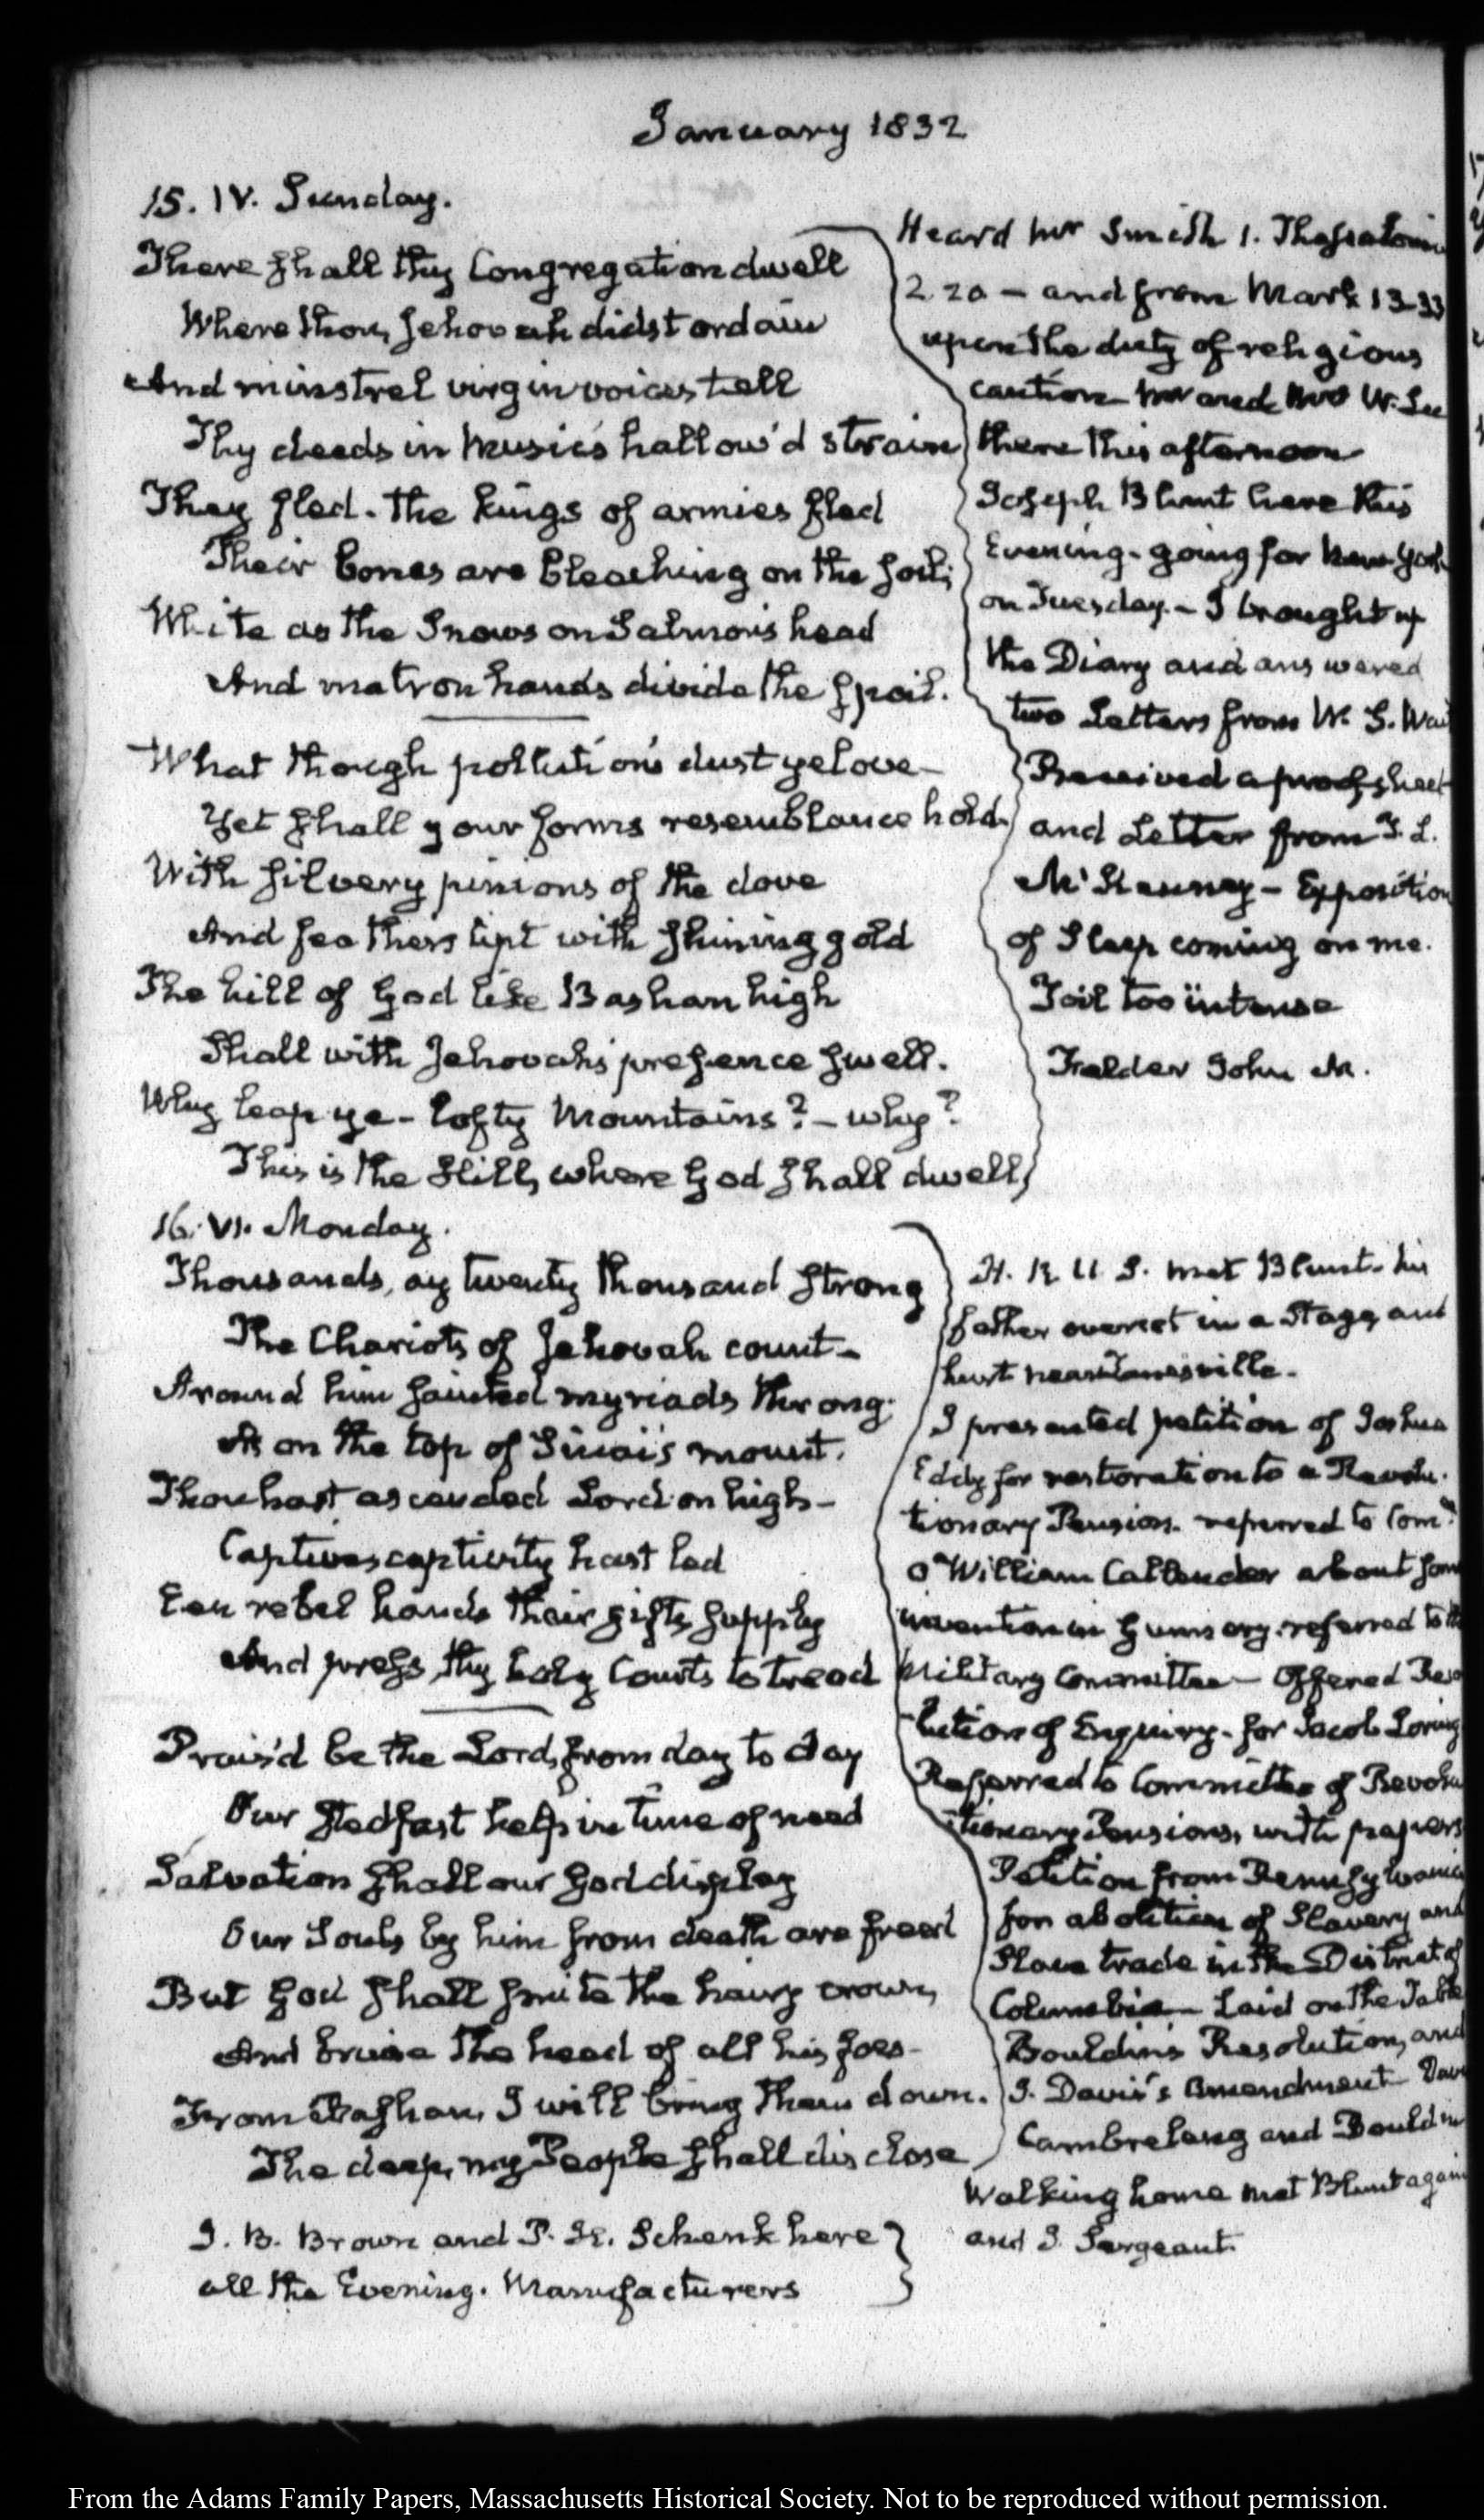 January 1832
15. IV. Sunday.
There shall thy Congregation dwell
Where thou, Jehovah didst ordain
And minstrel virgin voices tell
Thy deeds in Music's hallow'd strain
They fled. The kings of armies fled
Their bones are bleaching on the soil;
White as the Snows on Salmon's head
And matron hands divide the spoil.
What though pollution's dust ye love—
Yet shall your forms resemblance hold
With silvery pinions of the dove
And feathers tipt with shining gold
The hill of God like Bashan high
Shall with Jehovah's presence swell.
Why leap ye - lofty Mountains? - why?
This is the Hill, where God shall dwell,
Heard Mr Smith 1. Thessaloni
2 20 — and from Mark 13-33
upon the duty of religious
caution Mr and Mrs W. Lee
there this afternoon
Joseph Blunt here this
Evening - going for New York
on Tuesday. - I brought up
the Diary and answered
two Letters from W. S. Wai
Received a proof sheet
and Letter from T. L.
McKenney — Exposition
of Sleep coming on me.
Toil too intense
John M.
16. VI. Monday.
Thousands, ay twenty thousand strong
The Chariots of Jehovah count —
Around him sainted myriads throng;
As on the top of Sinai's mount.
Thou hast ascended Lord on high —
Captive captivity hast led
Een rebel hands their gifts supply
And press thy holy Courts to tread
Prais'd be the Lord, from day to day
Our stedfast help in time of need
Salvation shall our God display
Our Souls by him from death are freed
But God shall smite the hairy crown,
And bruise the head of all his foes -
From Bashan, I will bring them down.
The deep, my People shall disclose
J. B. Brown and P. H. Schenk here
all the Evening. Manufacturers
H. R U S. met Blunt - his
father overset in a Stage, and
hurt near Zanesville.
I presented petition of Joshua
Eddy for restoration to a Revolu-
tionary Pension. referred to Comee
O William Callender about some
invention in Gunnery. referred to the
Military Committee — Offered Reso
lution of Enquiry - for Jacob Loring
Referred to Committee of Revolu
tionary Pensions, with papers
Petition from Pennsylvania
for abolition of Slavery and
Slave trade in the District of
Columbia — Laid on the Table
Bouldin's Resolution, and
J. Davis's amendment Davis
Cambreleng and Bouldin
Walking home met Blunt again
and J. Sergeant.
From the Adams Family Papers, Massachusetts Historical Society. Not to be reproduced without permission.